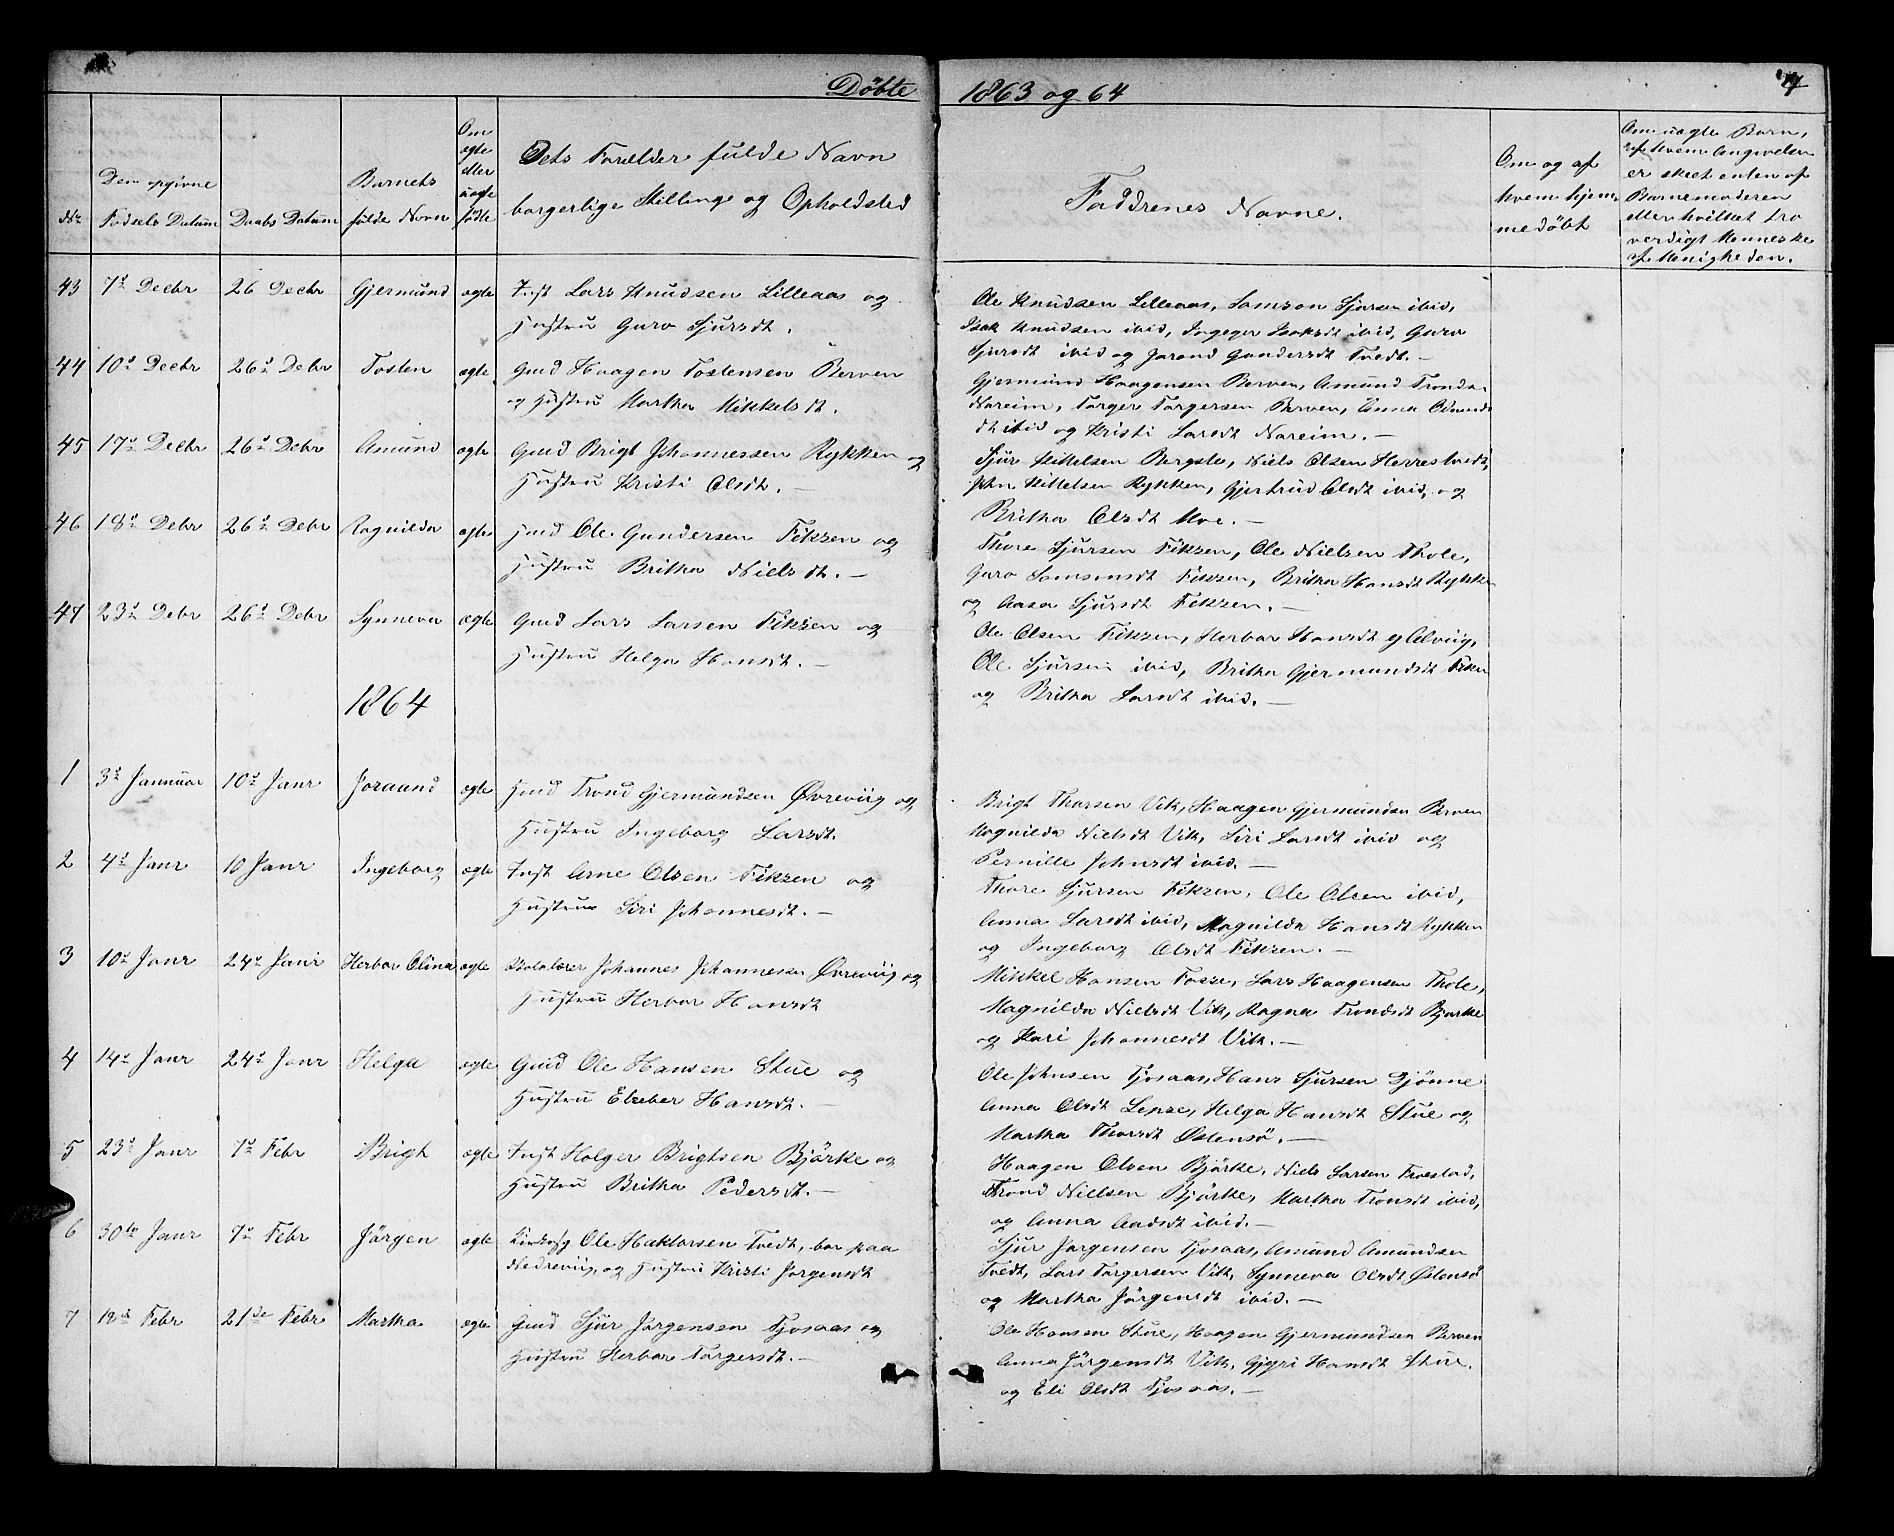 Döbte 1863 og 64
Nr
Den opgivne Fødsels Datum
Daabs Datum
Barnets fulde Navn
Om ægte eller uægte født
Dets Forælder fulde Navn borgerlige Stillinge og Opholdsted
Faddrenes Navne.
Om og af hvem hjemmedøbt
Om uægte Barn, af hvem Angivelsen er skeet enten af Barnemoderen eller hvilket troverdigt Menneske af Menigheden.
43 7d Decbr 26 Decbr Gjermund ægte Inst Lars Knudsen Lilleaas og
Hustru Guro Sjursdt.
Ole Knudsen Lilleaas, Samson Sjursen ibid,
Isak Knudsen ibid, Ingeger Isaksdt ibid, Guro
Sjursdt ibid og Jorand Gundersdt Tvedt.—
44 10d Decbr 26d Debr Tosten ægte Gmd Haagen Tostensen Berven
og Hustru Martha Mikkelsdt.
Gjermund Haagensen Berven, Amund Tronds.
Nareim, Torger Torgersen Berven, Anna Odmunds
dt ibid og Kristi Larsdt Nareim.—
45 17d Decbr 26d Debr Amund ægte Gmd Brigt Johannessen Rykken og
Hustru Kristi Olsdt.—
Sjur Kittelsen Bergste, Niels Olsen Herrestvedt,
John Kittelsen Rykken, Gjertrud Olsdt ibid, og
Britha Olsdt Moe.—
46 18d Debr 26d Debr Ragnilda ægte Gmd Ole Gundersen Fikzen og
Hustru Britha Nielsdt.—
Thore Sjursen Fikzen, Ole Nielsen Thole,
Guro Samsonsdt Fikzen, Britha Hansdt Rykken
og Aasa Sjursdt Fikzen.—
47 23d Debr 26d Debr Synneva ægte Gmd Lars Larsen Fikzen og
Hustru Helga Hansdt.—
Ole Olsen Fikzen, Herbor Hansdt Alviig,
Ole Sjursen ibid, Britha Gjermundsdt Fikzen
og Britha Larsdt ibid.—
1864
1 3d Januar 10d Janr Joraand ægte Gmd Trond Gjermundsen Øvreviig og
Hustru Ingeborg Larsdt.
Brigt Thorsen Vik, Haagen Gjermundsen Berven
Magnilda Nielsdt Vik, Siri Larsdt ibid og
Pernille Johnsdt ibid.—
2 4d Janr 10 Janr Ingeborg ægte Inst Arne Olsen Fikzen og
Hustrue Siri Johannesdt.—
Thore Sjursen Fikzen, Ole Olsen ibid,
Anna Larsdt ibid, Magnilda Hansdt Rykken
og Ingeborg Olsdt Fikzen.—
3 10d Janr 24d Janr Herbor Olina ægte Skolelærer Johannes Johannesen Øvreviig og
Hustru Herbor Hansdt
Mikkel Hansen Fosse, Lars Haagensen Thole,
Magnilda Nielsdt Vik, Ragna Trondsdt Bjørke
og Kari Johannesdt Vik.—
4 14d Janr 24d Janr Helga ægte Gmd Ole Hansen Stue og
Hustru Elzeber Hansdt.—
Ole Johnsen Tjosaas, Hans Sjursen Djønne
Anna Olsdt Lepze, Helga Hansdt Stue og
Martha Thorsdt Østensö.—
5 23d Janr 7d Febr Brigt ægte Inst Holger Brigtsen Bjørke og
Hustru Britha Pedersdt.—
Haagen Olsen Bjørke, Niels Larsen Froestad,
Trond Nielsen Bjørke, Martha Tronsdt ibid,
og Anna Aadsdt ibid.—
6 30te Janr 7d Febr Jörgen ægte Ole Haktorsen Tvedt, bor paa
Nedreviig, og Hustru Kristi Jørgensdt
Sjur Jørgensen Tjosaas, Amund Amundsen
Tvedt, Lars Torgersen Vik, Synneva Olsdt Østensö
og Martha Jörgensdt ibid.—
7 12d Febr 21de Febr Martha ægte Gmd Sjur Jørgensen Tjosaas og
Hustru Herbor Torgersdt.—
Ole Hansen Stue, Haagen Gjermundsen Berven
Anna Jörgensdt Vik, Gjyri Hansdt Stue.
og Eli Olsdt Tjosaas.—